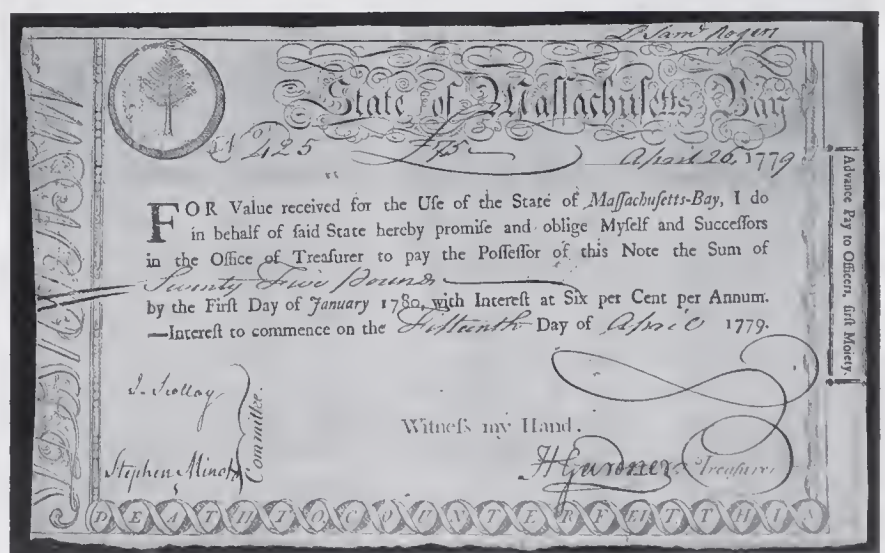 Sam^l Rogers
State of Maſſachuſetts Bay
N^o 425 £75 April 26, 1779
FOR Value received for the Uſe of the State of Maſſachuſetts-Bay, I do
in behalf of ſaid State hereby promiſe and oblige Myſelf and Succeſſors
in the Office of Treaſurer to pay the Poſſeſſor of this Note the Sum of
Seventy Five Pounds
by the Firſt Day of January 1780, with Intereſt at Six per Cent per Annum.
—Intereſt to commence on the Fifteenth Day of April 1779.
Advance Pay to Officers, firſt Moiety.
J. Scollay
Stephen Minot
Committee.
Witneſs my Hand.
HGardner Treaſurer
DEATH TO COUNTERFEIT